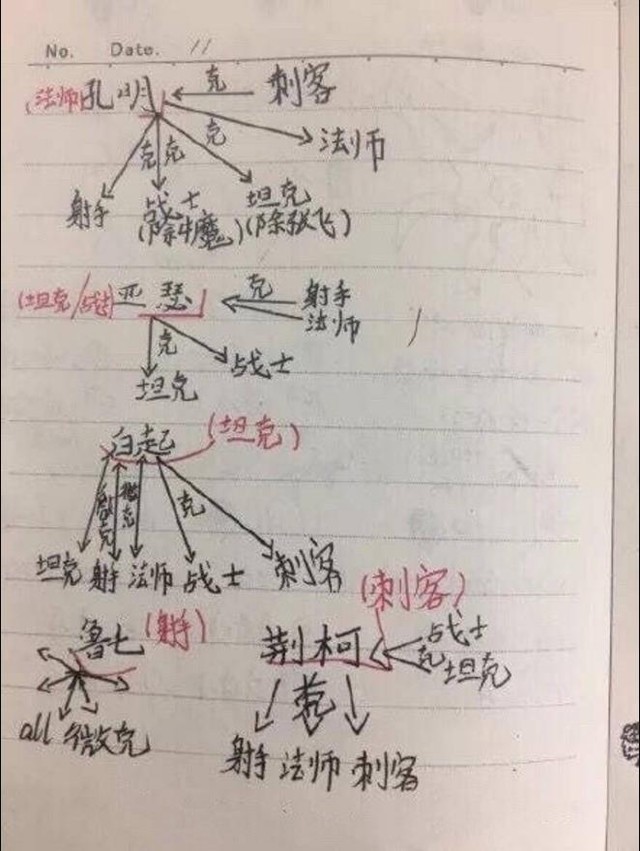 No. Date. //
(法师)孔明 克 刺客
克 法师
克 克
射手 战士 坦克
(除牛魔) (除张飞)
(坦克/战士)亚瑟 克 射手
法师
克
坦克 战士
白起 (坦克)
微克 微克 克
坦克 射手 法师 战士 刺客
鲁七 (射手)
all 微克
荆柯 (刺客)
克 战士
坦克
克
射手 法师 刺客